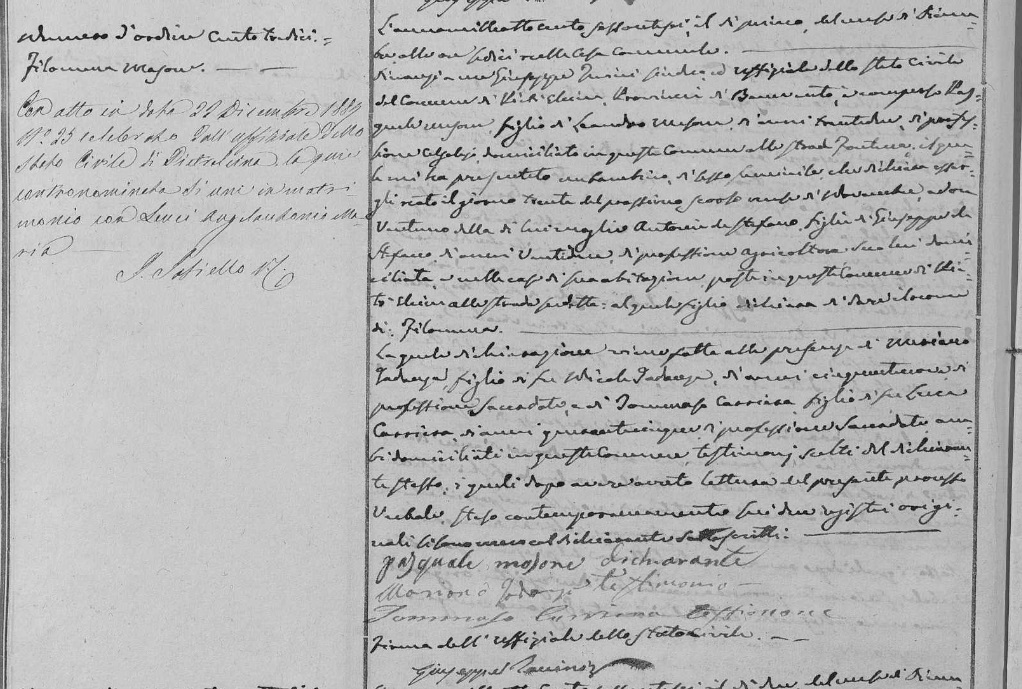 Numero d'ordine Cento tredici.=
Filomena Masone.
Con atto in data 22 Dicembre 188
N.° 23 celebrato dall'uffiziale dello
Stato Civile di Pietrelcina la qui
contronominata si unì in matri
monio con Lucci Angelantonio Ma=
ria
L'anno mille otto cento sessantasei, il dì primo del mese di Dicem=
bre alle ore sedici nella Casa Comunale.
Dinanzi a me Giuseppe Sindaco ed uffiziale dello stato Civile
del Comune di Pietrelcina, Provincia di Benevento, è comparso Pas=
quale Masone, figlio di Leandro Masone, di anni trentadue, di profes=
sione domiciliato in questo Comune alla strada il qua=
le mi ha presentato un bambino, di sesso femminile, che dichiara esser=
gli nato il giorno trenta del prossimo scorso mese di Novembre, ad ore
Ventuno dalla di lui moglie Antonia de Stefano, figlia di Giuppe de
Stefano, di anni Ventidue, di professione agricoltora, seco lui domi=
ciliata, e nella casa di sua abitazione, posta in questo Comune di Pie=
trelcina alla strada suddetta: al quale figlio dichiara di dare il nome
di Filomena.
La quale dichiarazione viene fatta alla presenza di Mariano
figlio di fu Nicola di anni cinquantanove di
professione Sacerdote, e di Tommaso Carriera figlio di fu Luca
Carriera, di anni quarantacinque di professione Sacerdote, am=
bi domiciliati in questo Comune, testimonj scelti dal dichiaran=
te stesso, i quali dopo aver avuto lettura del presente processo
Verbale, steso contemporaneamente sui due registri origi=
nali si sono meco col dichiarante sottoscritti.
pasquale masone dichiarante
Mariano testimonio
Tommaso Carriera testimone
Firma dell'Uffiziale dello stato Civile.
Giuseppe